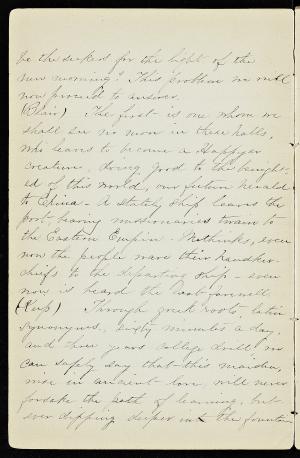 be the seekers for the light of the
new morning? This problem we will
now proceed to answer.
(Blair) The first - is one whom we
shall see no more in these halls,
who leaves to become a Happyer
creature, doing good to the benight-
ed of this world, our future herald
to China - A stately ship leaves the
port bearing missionaries to
the Eastern Empire - Methinks, even
now the people wave their handker-
chiefs to the departing ship - even
now is heard the last farewell
Through greek roots, latin
synonyms, sixty minutes a day,
and three years college drill we
can safely say that - this maiden,
wise in ancient lore, will never
forsake the path of learning, but
ever dipping deeper into the fountain